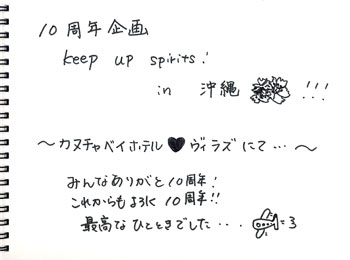 10周年企画
keep up spirits!
in 沖縄 !!!
〜カヌチャベイホテル♥ヴィラズにて…〜
みんなありがと10周年!
これからもよろしく10周年!!
最高なひとときでした・・・ =3